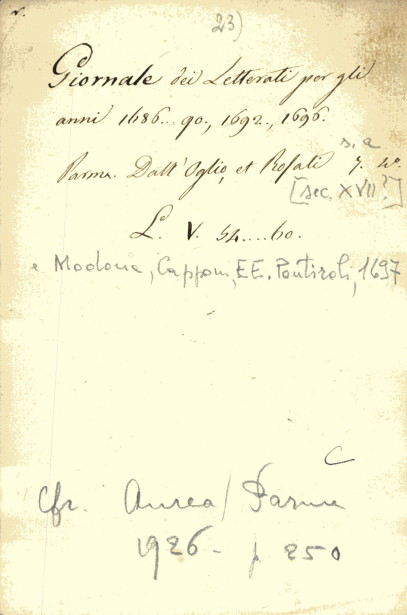 23)
Giornale dei Letterati per gli
anni 1686...90., 1692., 1696.
s. a
Parma. Dall'Oglio, et Rosati 7. 4°.
[sec. XVII?]
L. V. 54....60.
e Modona, Capponi, EE. Pontiroli, 1697
C
Cfr. Aurea Parma
1926 - p 250